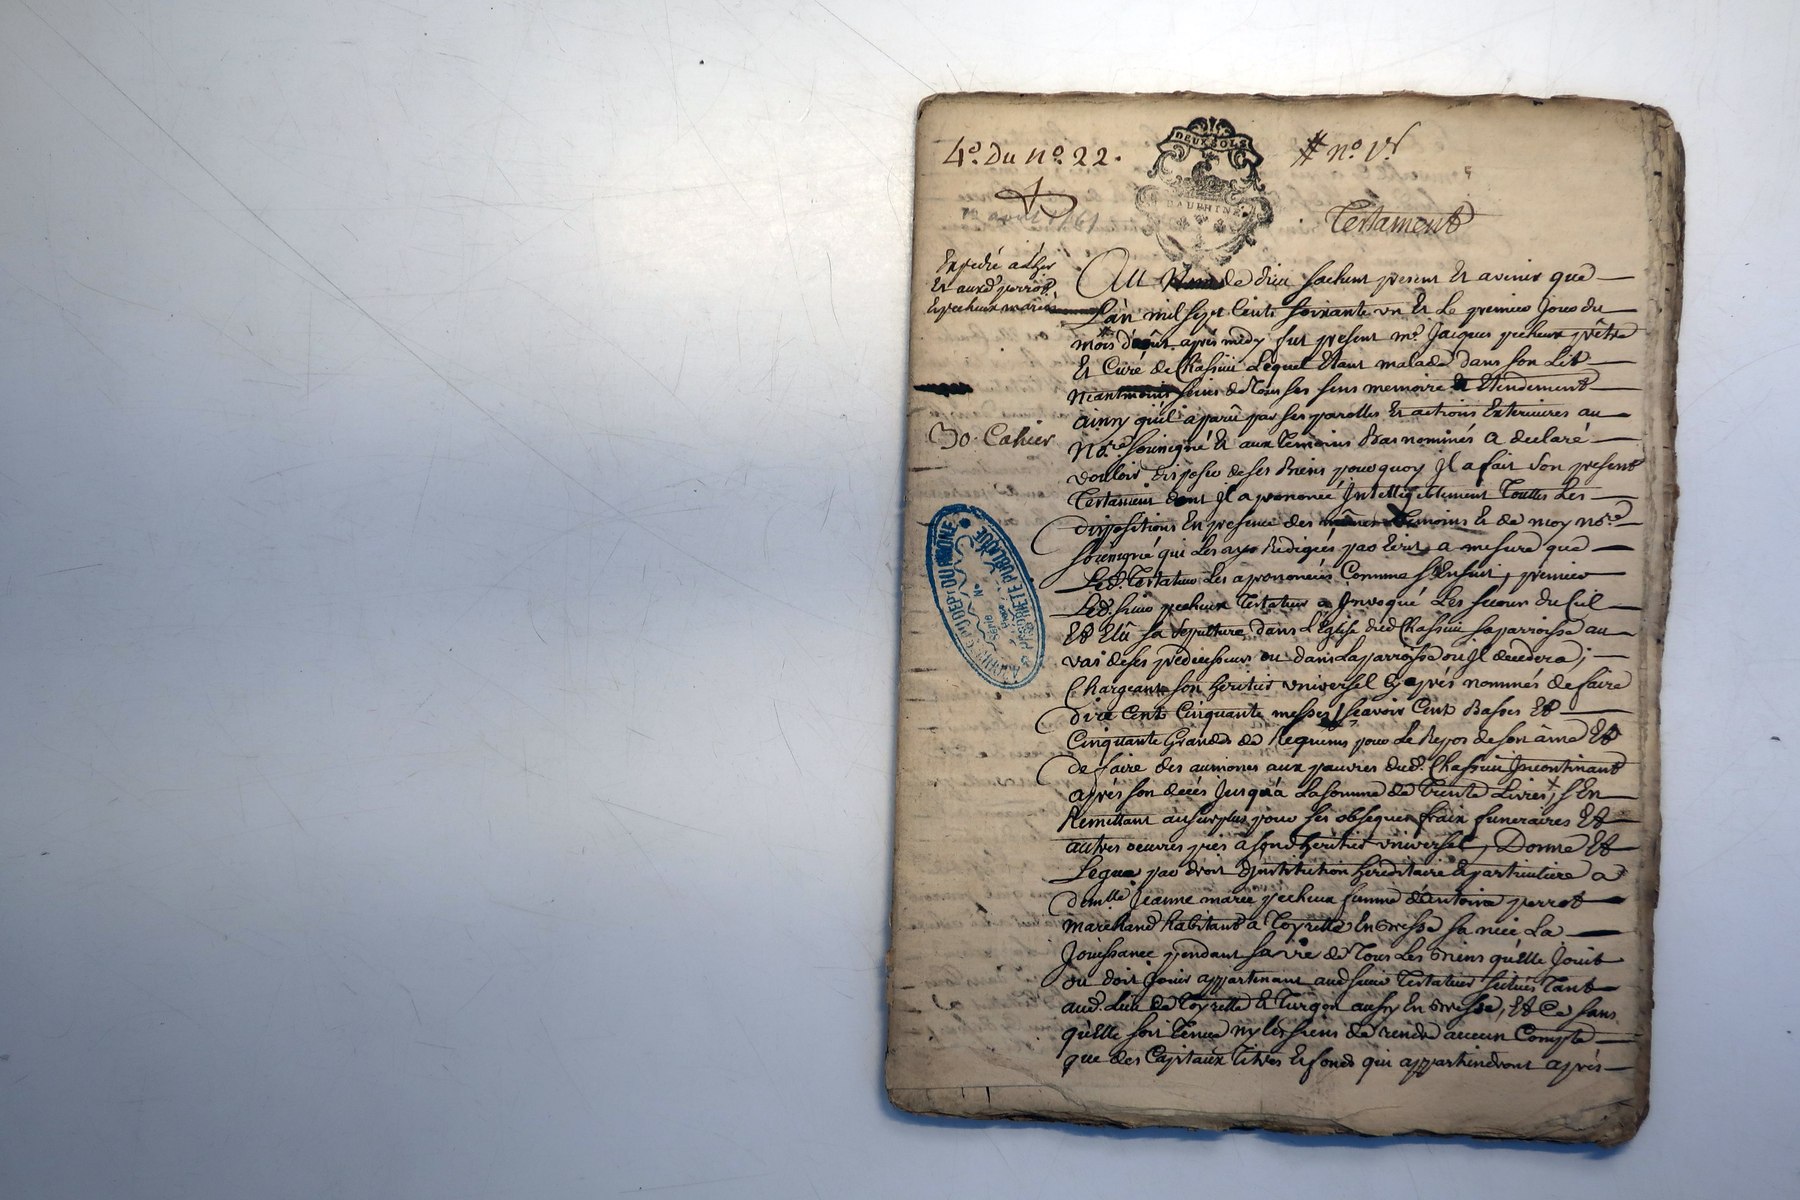 4.° Du N.° 22.
DEUX SOLS
DAUPHINÉ
# n.° V.
Testament
Expedié
Et aux d. perrot
Et pecheux mariés
30. Cahier
ARCHIVES DU DEP.T DU RHÔNE
PROPRIÉTÉ PUBLIQUE
Série
N°
Au Nom de dieu sachent present Et avenir que
L'an mil sept Cents soixante un Et Le premier Jour du
mois d'août après midy fut present m.e Jacques pecheux prêtre
Et Curé de Chassuii Lequel Etant malade dans son Lit
Neantmoins sains de Tous ses sens memoire Et Etendement
ainsy qu'il apparû par ses parolles Et actions Exterieures au
No.re sousigné Et aux Temoins Bas nominés a declaré
vouloir disposer de ses Biens pourquoy Il a fait son present
Testament dont Il a prononcé Intelligiblement Touttes Les
dispositions En presence des mêmes Temoins Et de moy no.re
sousigné qui Les ays Redigées par Ecrit a mesure que
Led. Testateur Les a prononcées Comme s'Ensuit, premier
Led. sieur pecheux Testateur a Invoqué Les secour du Ciel
Et Elû sa sepulture dans L'Eglise dud. Chassuii sa parroisse au
vas de ses predecesseurs ou dans La parroisse ou Il decedera;
Chargeant son heritier universel Cy après nommés de faire
dire Cent Cinquante messes, sçavoir Cent Basses Et
Cinquante Grandes de Requiems pour Le Repos de son âme Et
de faire des aumones aux pauvres dud. Chassuii Incontinant
après son decés Jusqu'à La somme de Trente Livres, s'En
Remettant au surplus pour ses obseques fraix funeraires Et
autres oeuvres pies a sond. heritier universel, Donne Et
Legue par droit d'Institution hereditaire Et particuliere a
dem.lle Jeanne marie pecheux femme d'Antoine perrot
marchand habitant a Toyrette En Bresse sa niéce La
Jouissance pendant sa vie de Tous Les Biens qu'Elle Jouit
ou doit Jouir appartenant aud. sieur Testateur situés Tant
aud. Lieu de Toyrette Et Turgon aussy En Bresse, Et Ce sans
qu'Elle soit Tenue ny Les siens de rendre aucun Compte
que des Capitaux Titres Et fonds qui appartiendront après